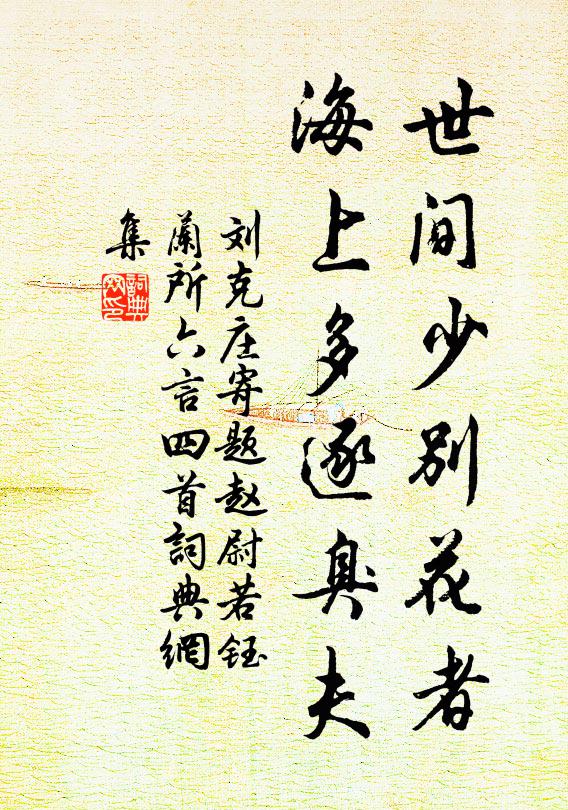 世间少别花者
海上多逐臭夫
刘克庄寄题赵尉若钰
兰所六言四首詞典網
集
詞典